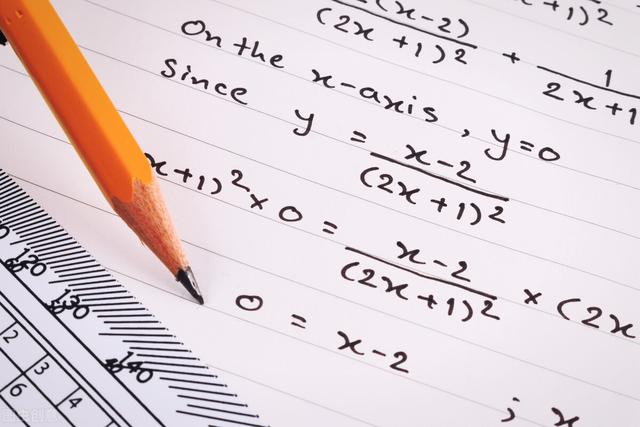 (x-2) x+1)²
(2x+1)² + 1
2x+1
On the x-axis, y=0
Since y = x-2
(2x+1)²
x+1)² × 0 = x-2 × (2x
(2x+1)²
0 = x-2
; x
120
130
140
2 3 4
6